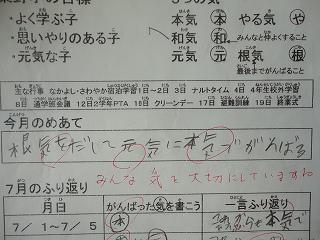 ・よく学ぶ子　本気 本 やる気 や
・思いやりのある子　和気 和 みんなと仲よくすること
・元気な子　元気 元 根気 根
最後までがんばること
主な行事 なかよし・さわやか宿泊学習1日～2日 3日 ナルトタイム 4日 4年生校外学習
8日 通学班会議 12日2学年PTA 16日 クリーンデー 17日 避難訓練 19日 終業式
今月のめあて
根気を だして 元気に 本気でがんばる
みんな気を大切にしていますね
7月のふり返り
月日 がんばった気を書こう 一言ふり返り
7/1～7/5 本 これからも本気で